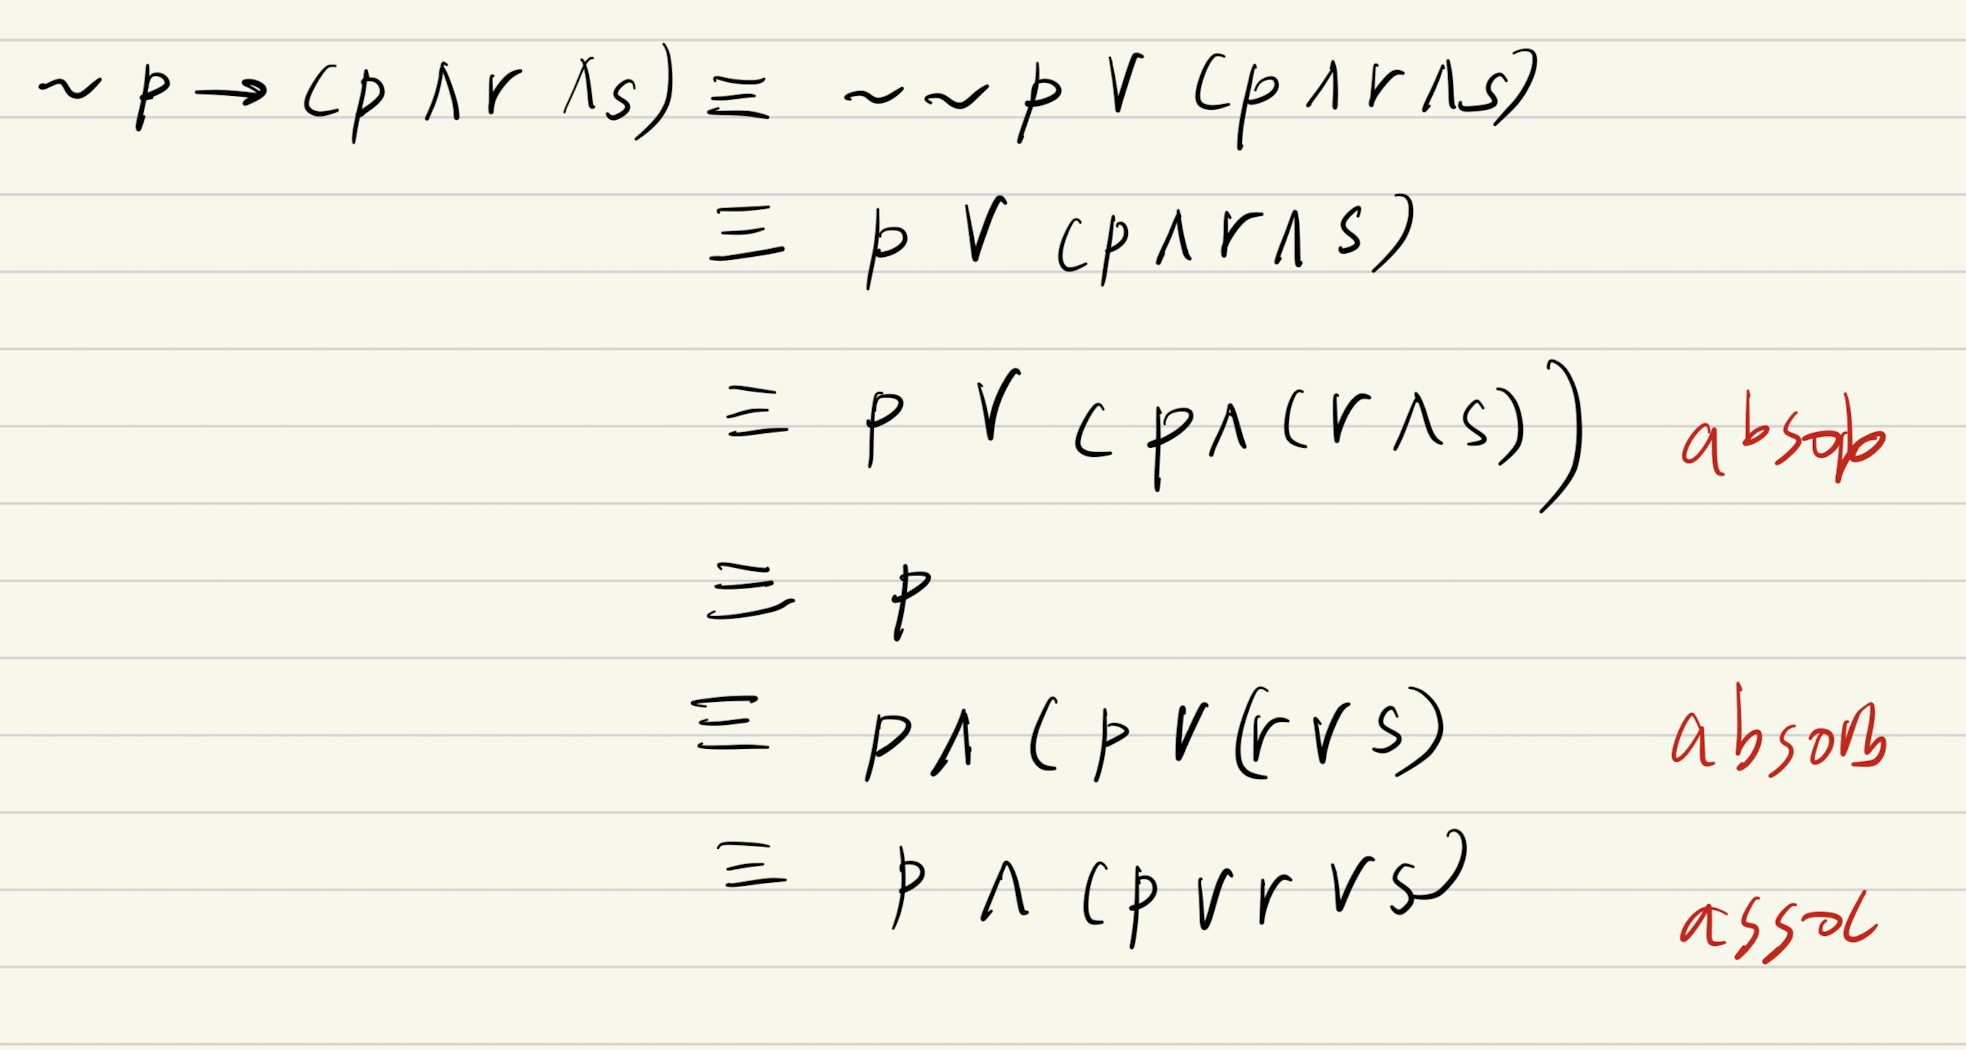 ~ p → (p ∧ r ∧ s) ≡ ~ ~ p ∨ (p ∧ r ∧ s)
≡ p ∨ (p ∧ r ∧ s)
≡ p ∨ (p ∧ (r ∧ s)) absopb
≡ p
≡ p ∧ (p ∨ (r ∨ s) absorb
≡ p ∧ (p ∨ r ∨ s) assoc